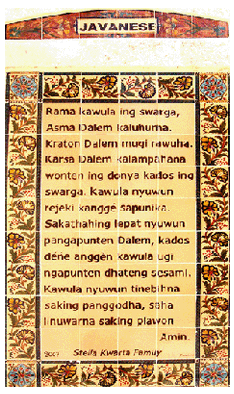 JAVANESE
Rama kawula ing swarga,
Asma Dalem kaluhurna.
Kraton Dalem mugi rawuha.
Karsa Dalem kalampahana
wonten ing donya kados ing
swarga. Kawula nyuwun
rejeki kangge sapunika.
Sakathahing lepat nyuwun
pangapunten Dalem, kados
dene anggen kawula ugi
ngapunten dhateng sesami.
Kawula nyuwun tinebihna
saking panggodha, saha
linuwarna saking piawon
Amin.
2007 Steifa Kwarta Family